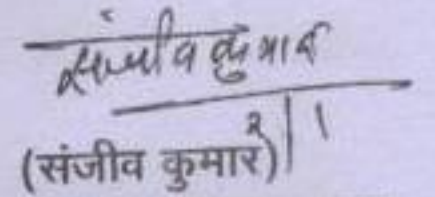 संजीव कुमार
२|१
(संजीव कुमार)